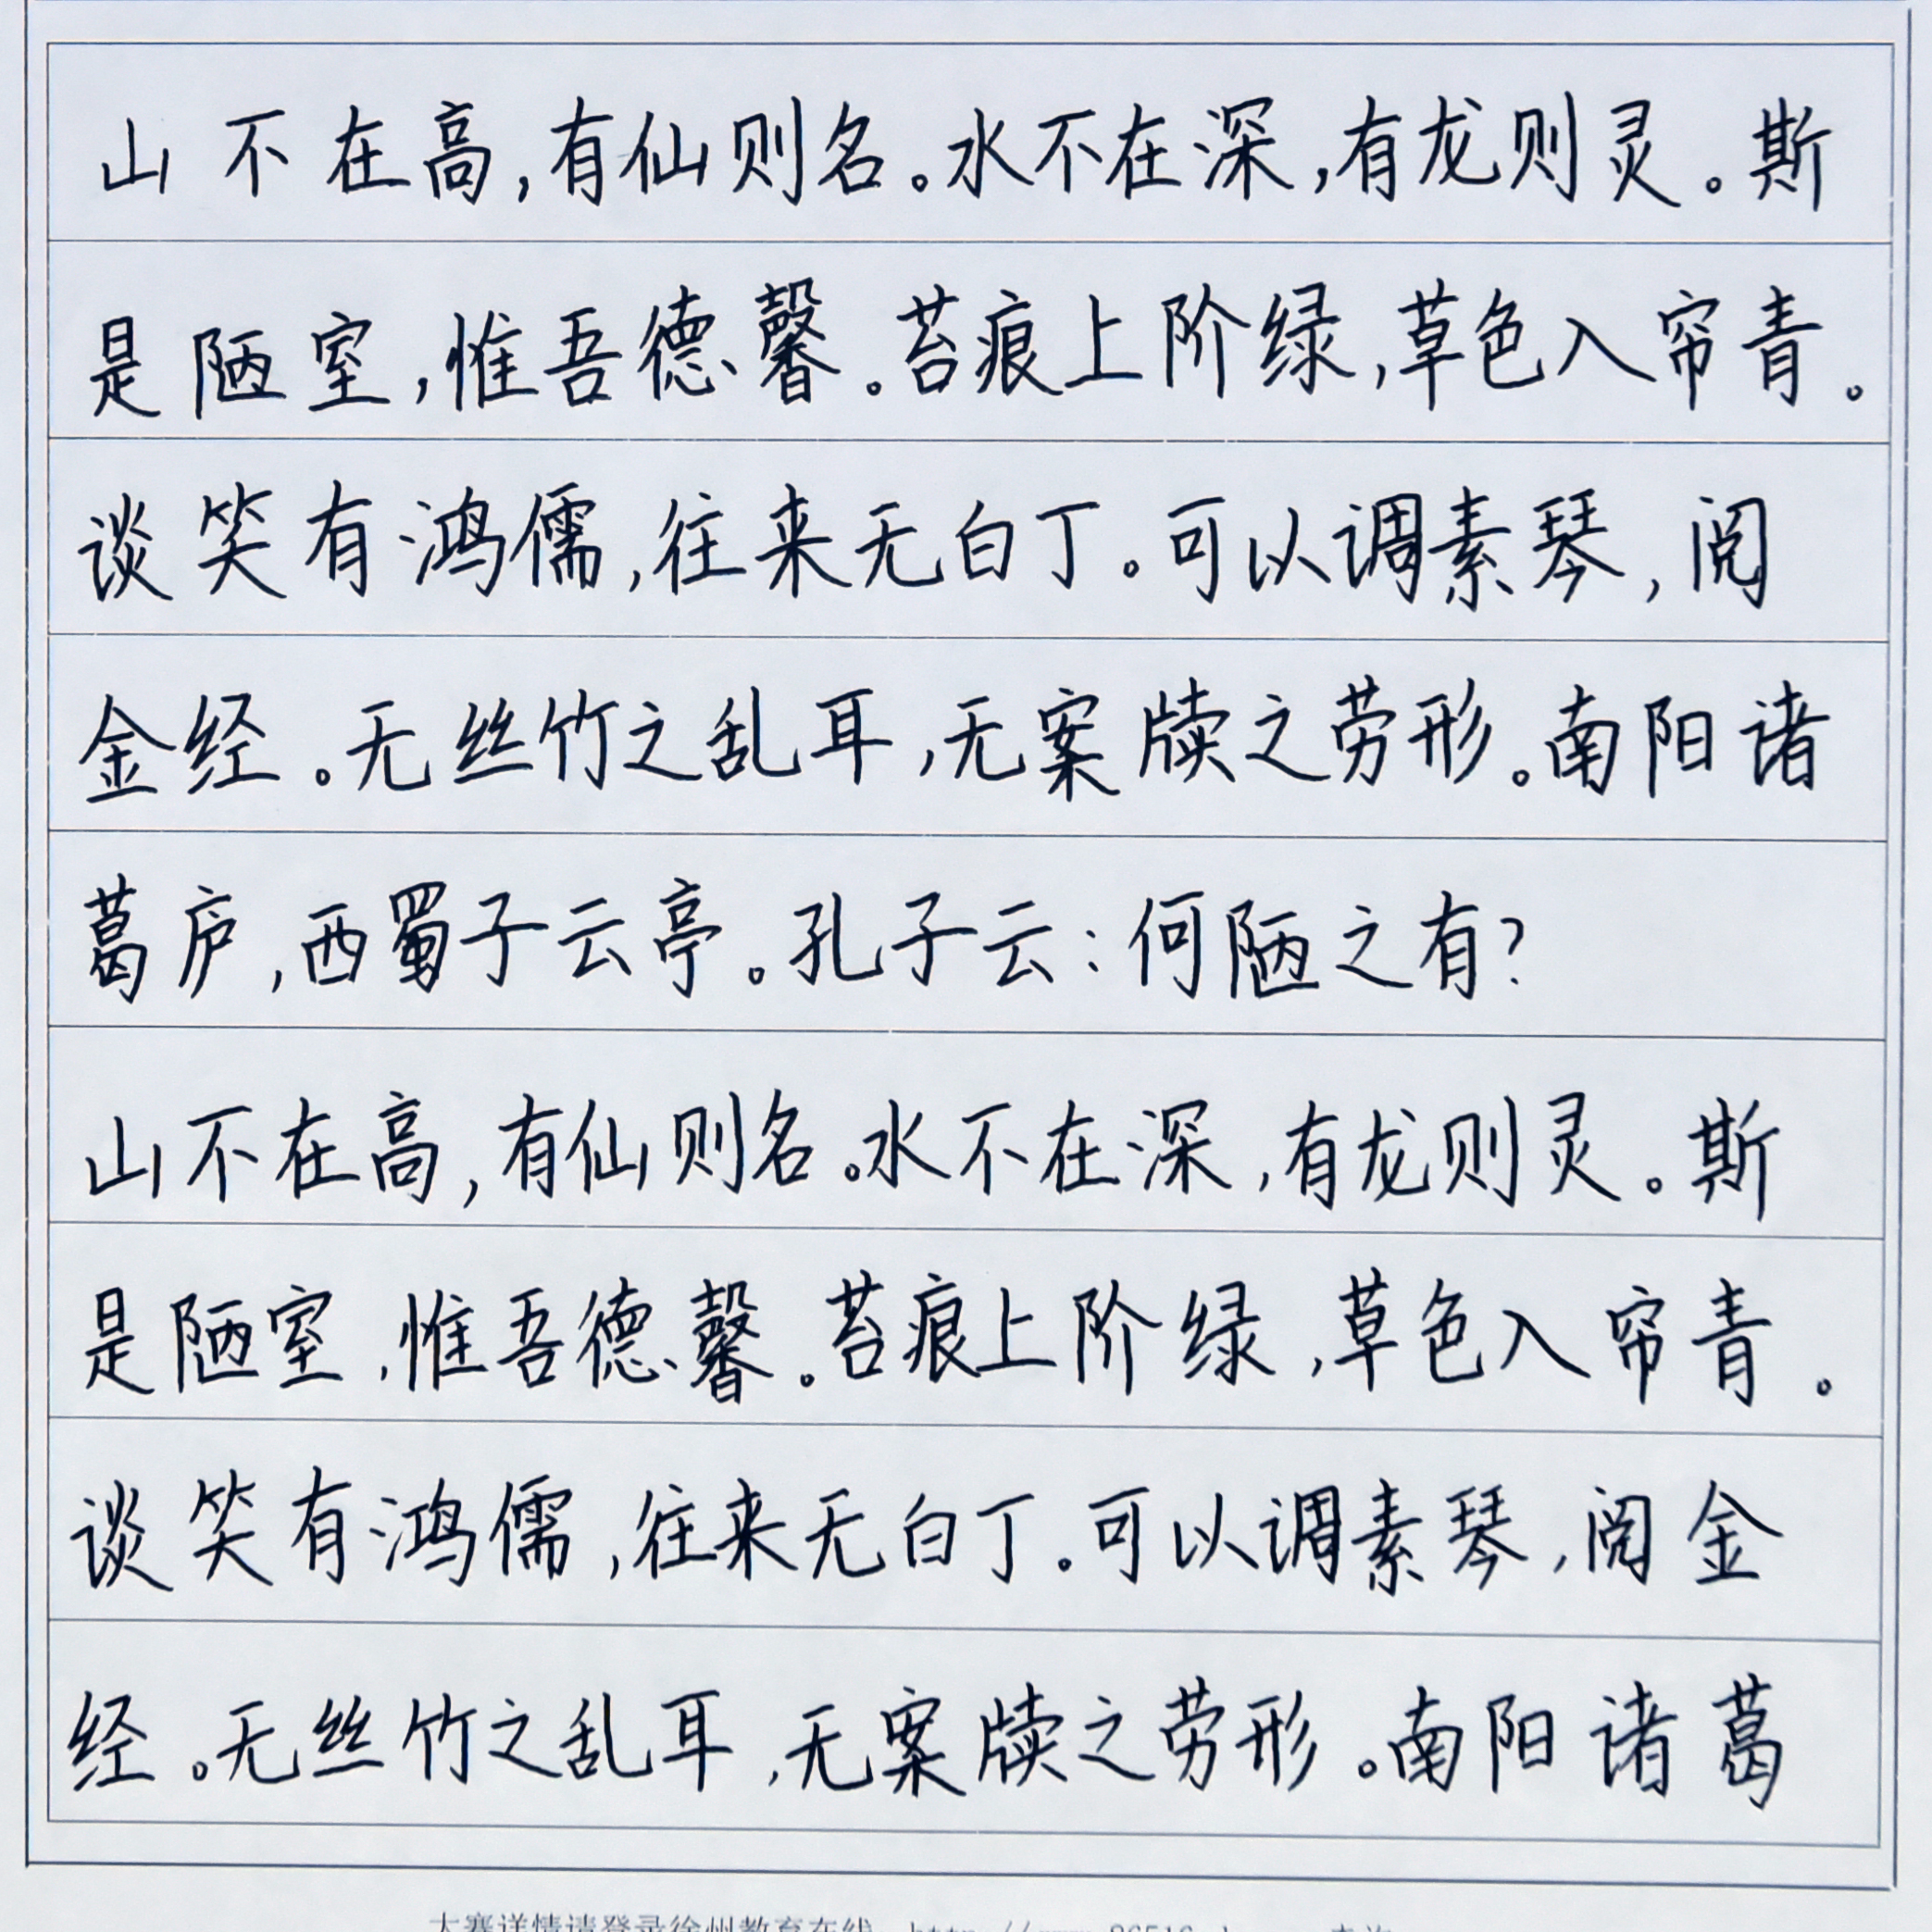 山不在高,有仙则名。水不在深,有龙则灵。斯
是陋室,惟吾德馨。苔痕上阶绿,草色入帘青。
谈笑有鸿儒,往来无白丁。可以调素琴,阅
金经。无丝竹之乱耳,无案牍之劳形。南阳诸
葛庐,西蜀子云亭。孔子云:何陋之有?
山不在高,有仙则名。水不在深,有龙则灵。斯
是陋室,惟吾德馨。苔痕上阶绿,草色入帘青。
谈笑有鸿儒,往来无白丁。可以调素琴,阅金
经。无丝竹之乱耳,无案牍之劳形。南阳诸葛
大赛详情请登录徐州教育在线